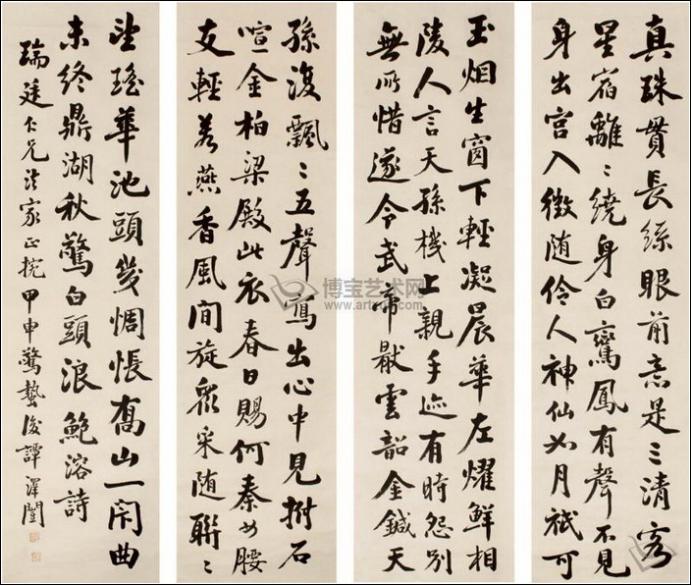 真珠貫長絲眼前意是三清客
星宿離〻繞身白鸞鳳有聲不見
身出宮入徵随伶人神仙如月祇可
玉烟生窗下輕凝晨華左燿鮮相
陵人言天孫機上親手迹有時怨别
無所惜遂令武帝厭雲韶金鍼天
飄〻五聲寫出心中見拊石
喧金柏梁殿此衣春日賜何秦女腰
支輕若燕香風間旋衆采随聯〻
望瑤華池頭幾惆悵喬山一閉曲
未終鼎湖秋驚白頭浪鮑溶詩
瑞廷仁兄法家正捥甲申驚蟄後譚澤闓
博宝艺术网